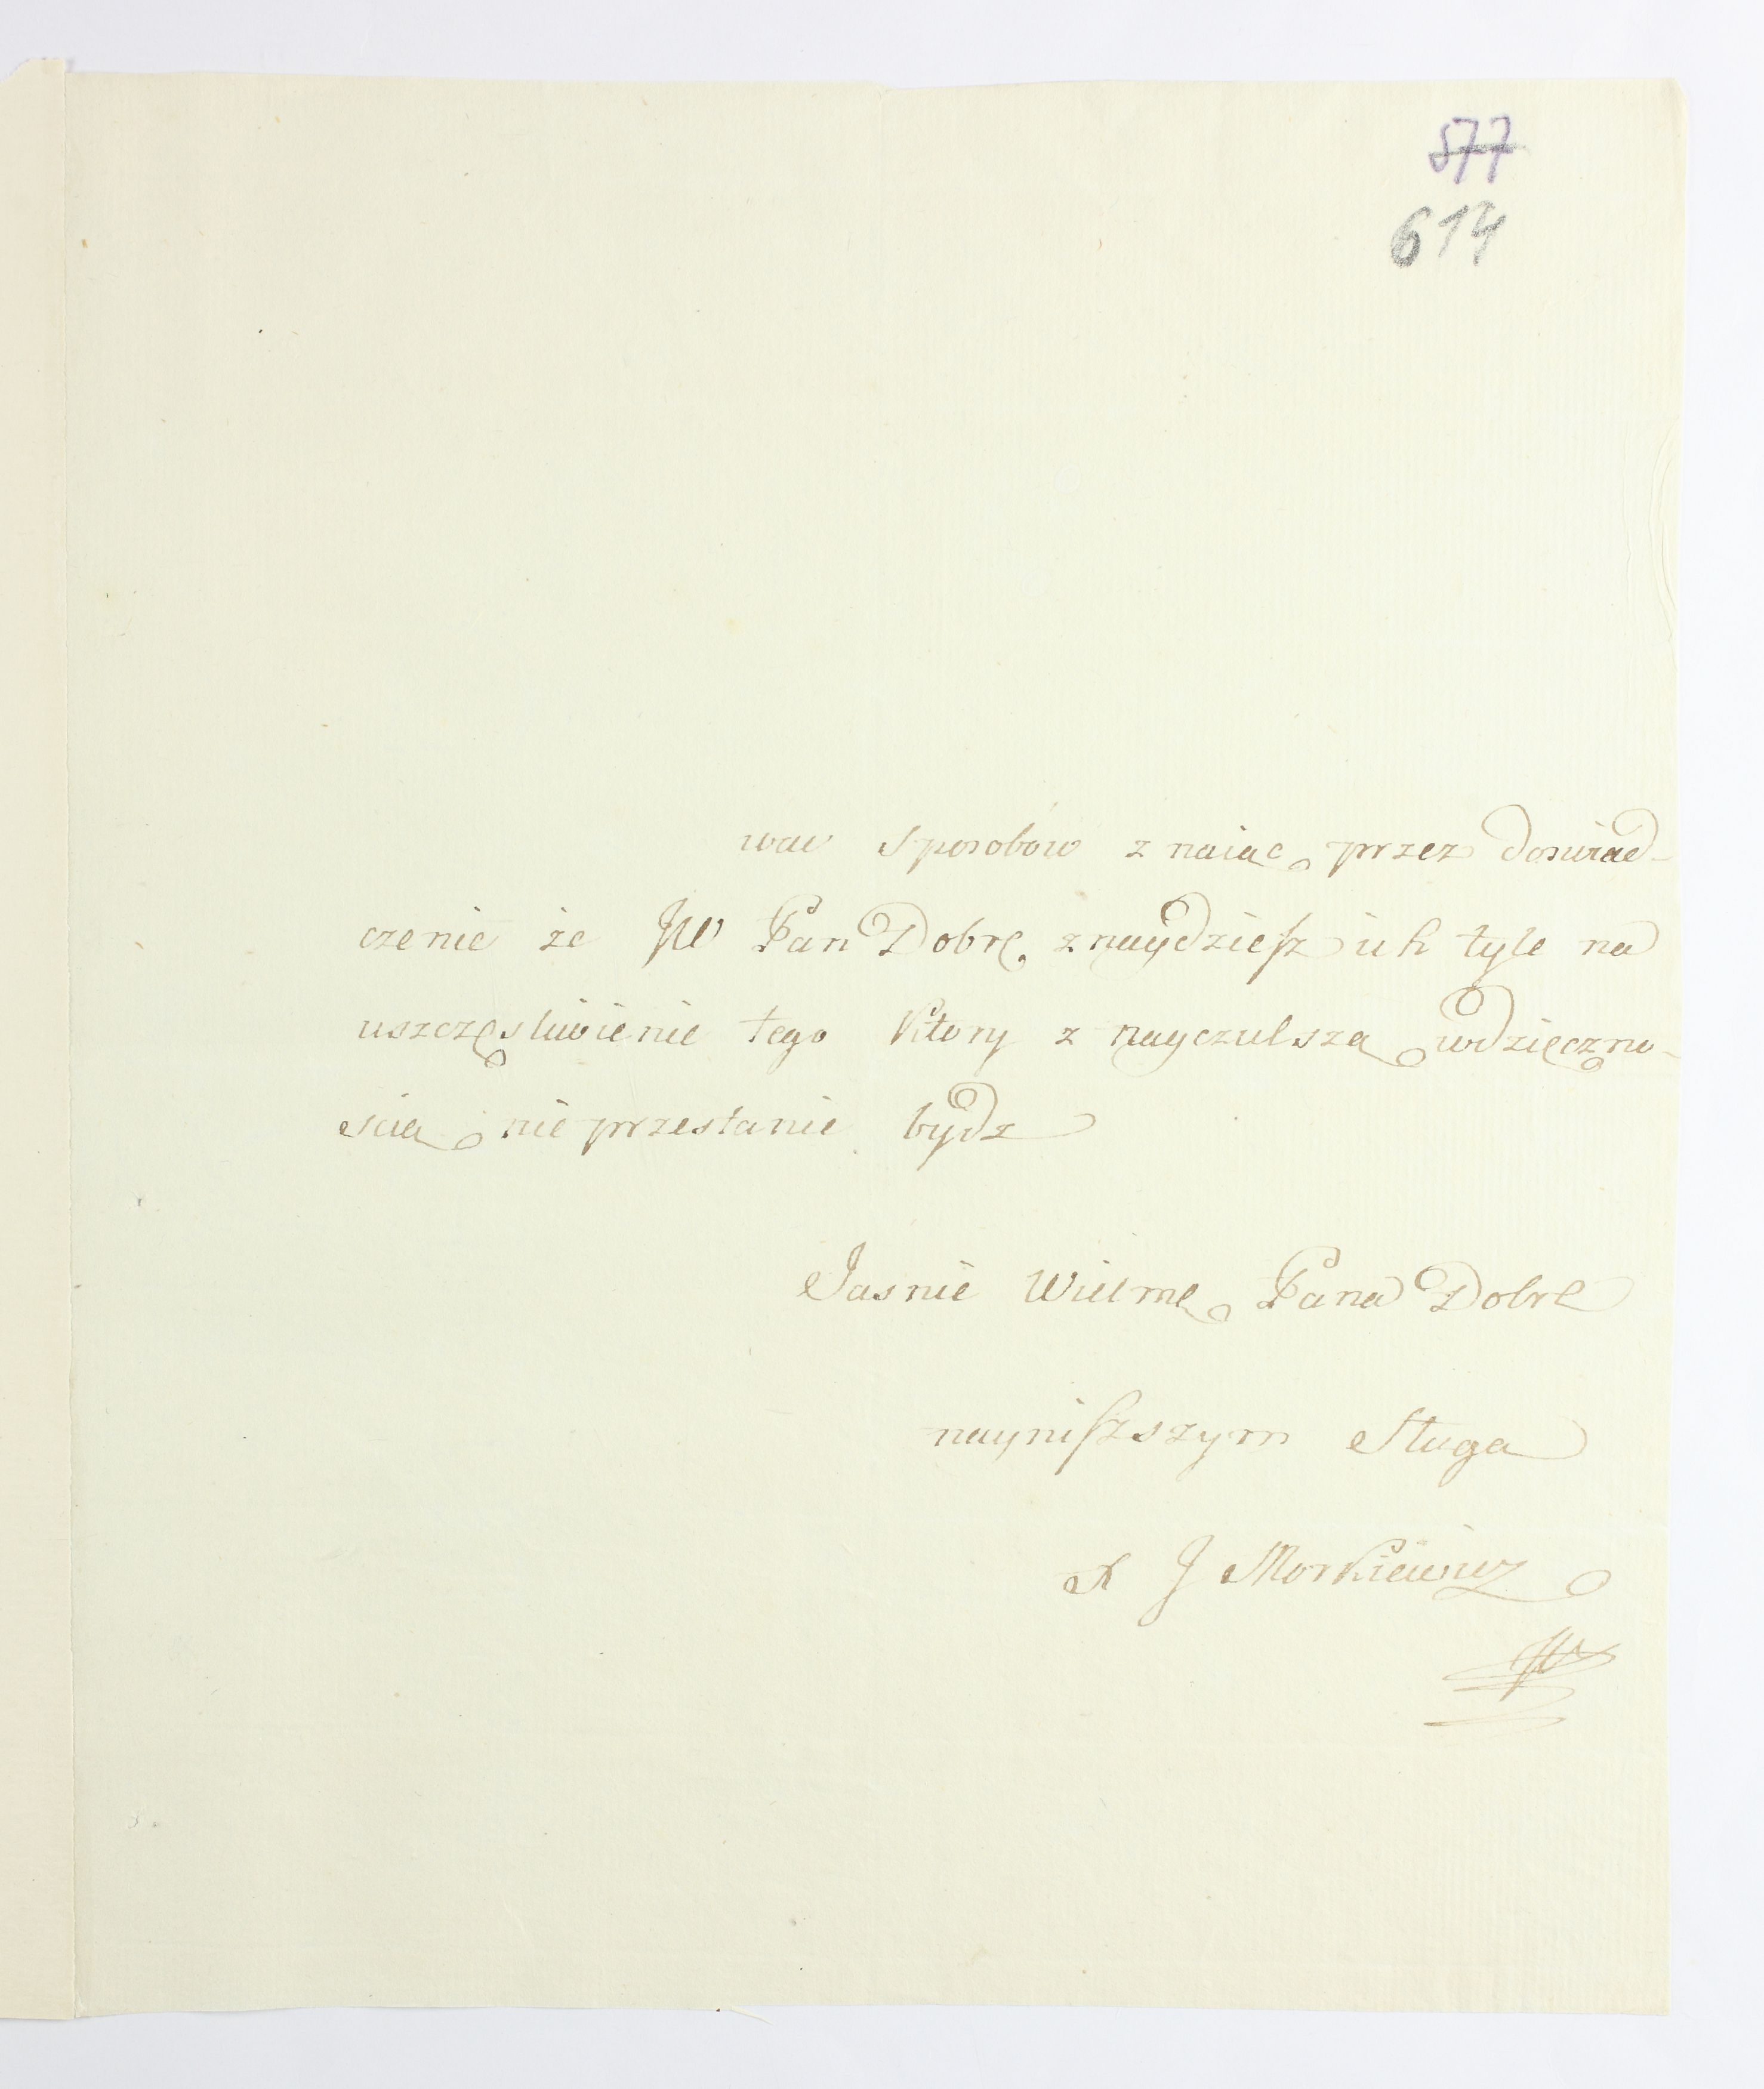 577
614
wac sposobow znaiąc przez doswiad-
czenie że JW Pan Dobrę znaydziesz ich tyle na
uszczęsliwienie tego Ktory z nayczulszą wdzięczno-
scią nieprzestanie bydz
Jasnie Wielmę Pana Dobre
nayniszszym Sługa
X J Morkiewicz